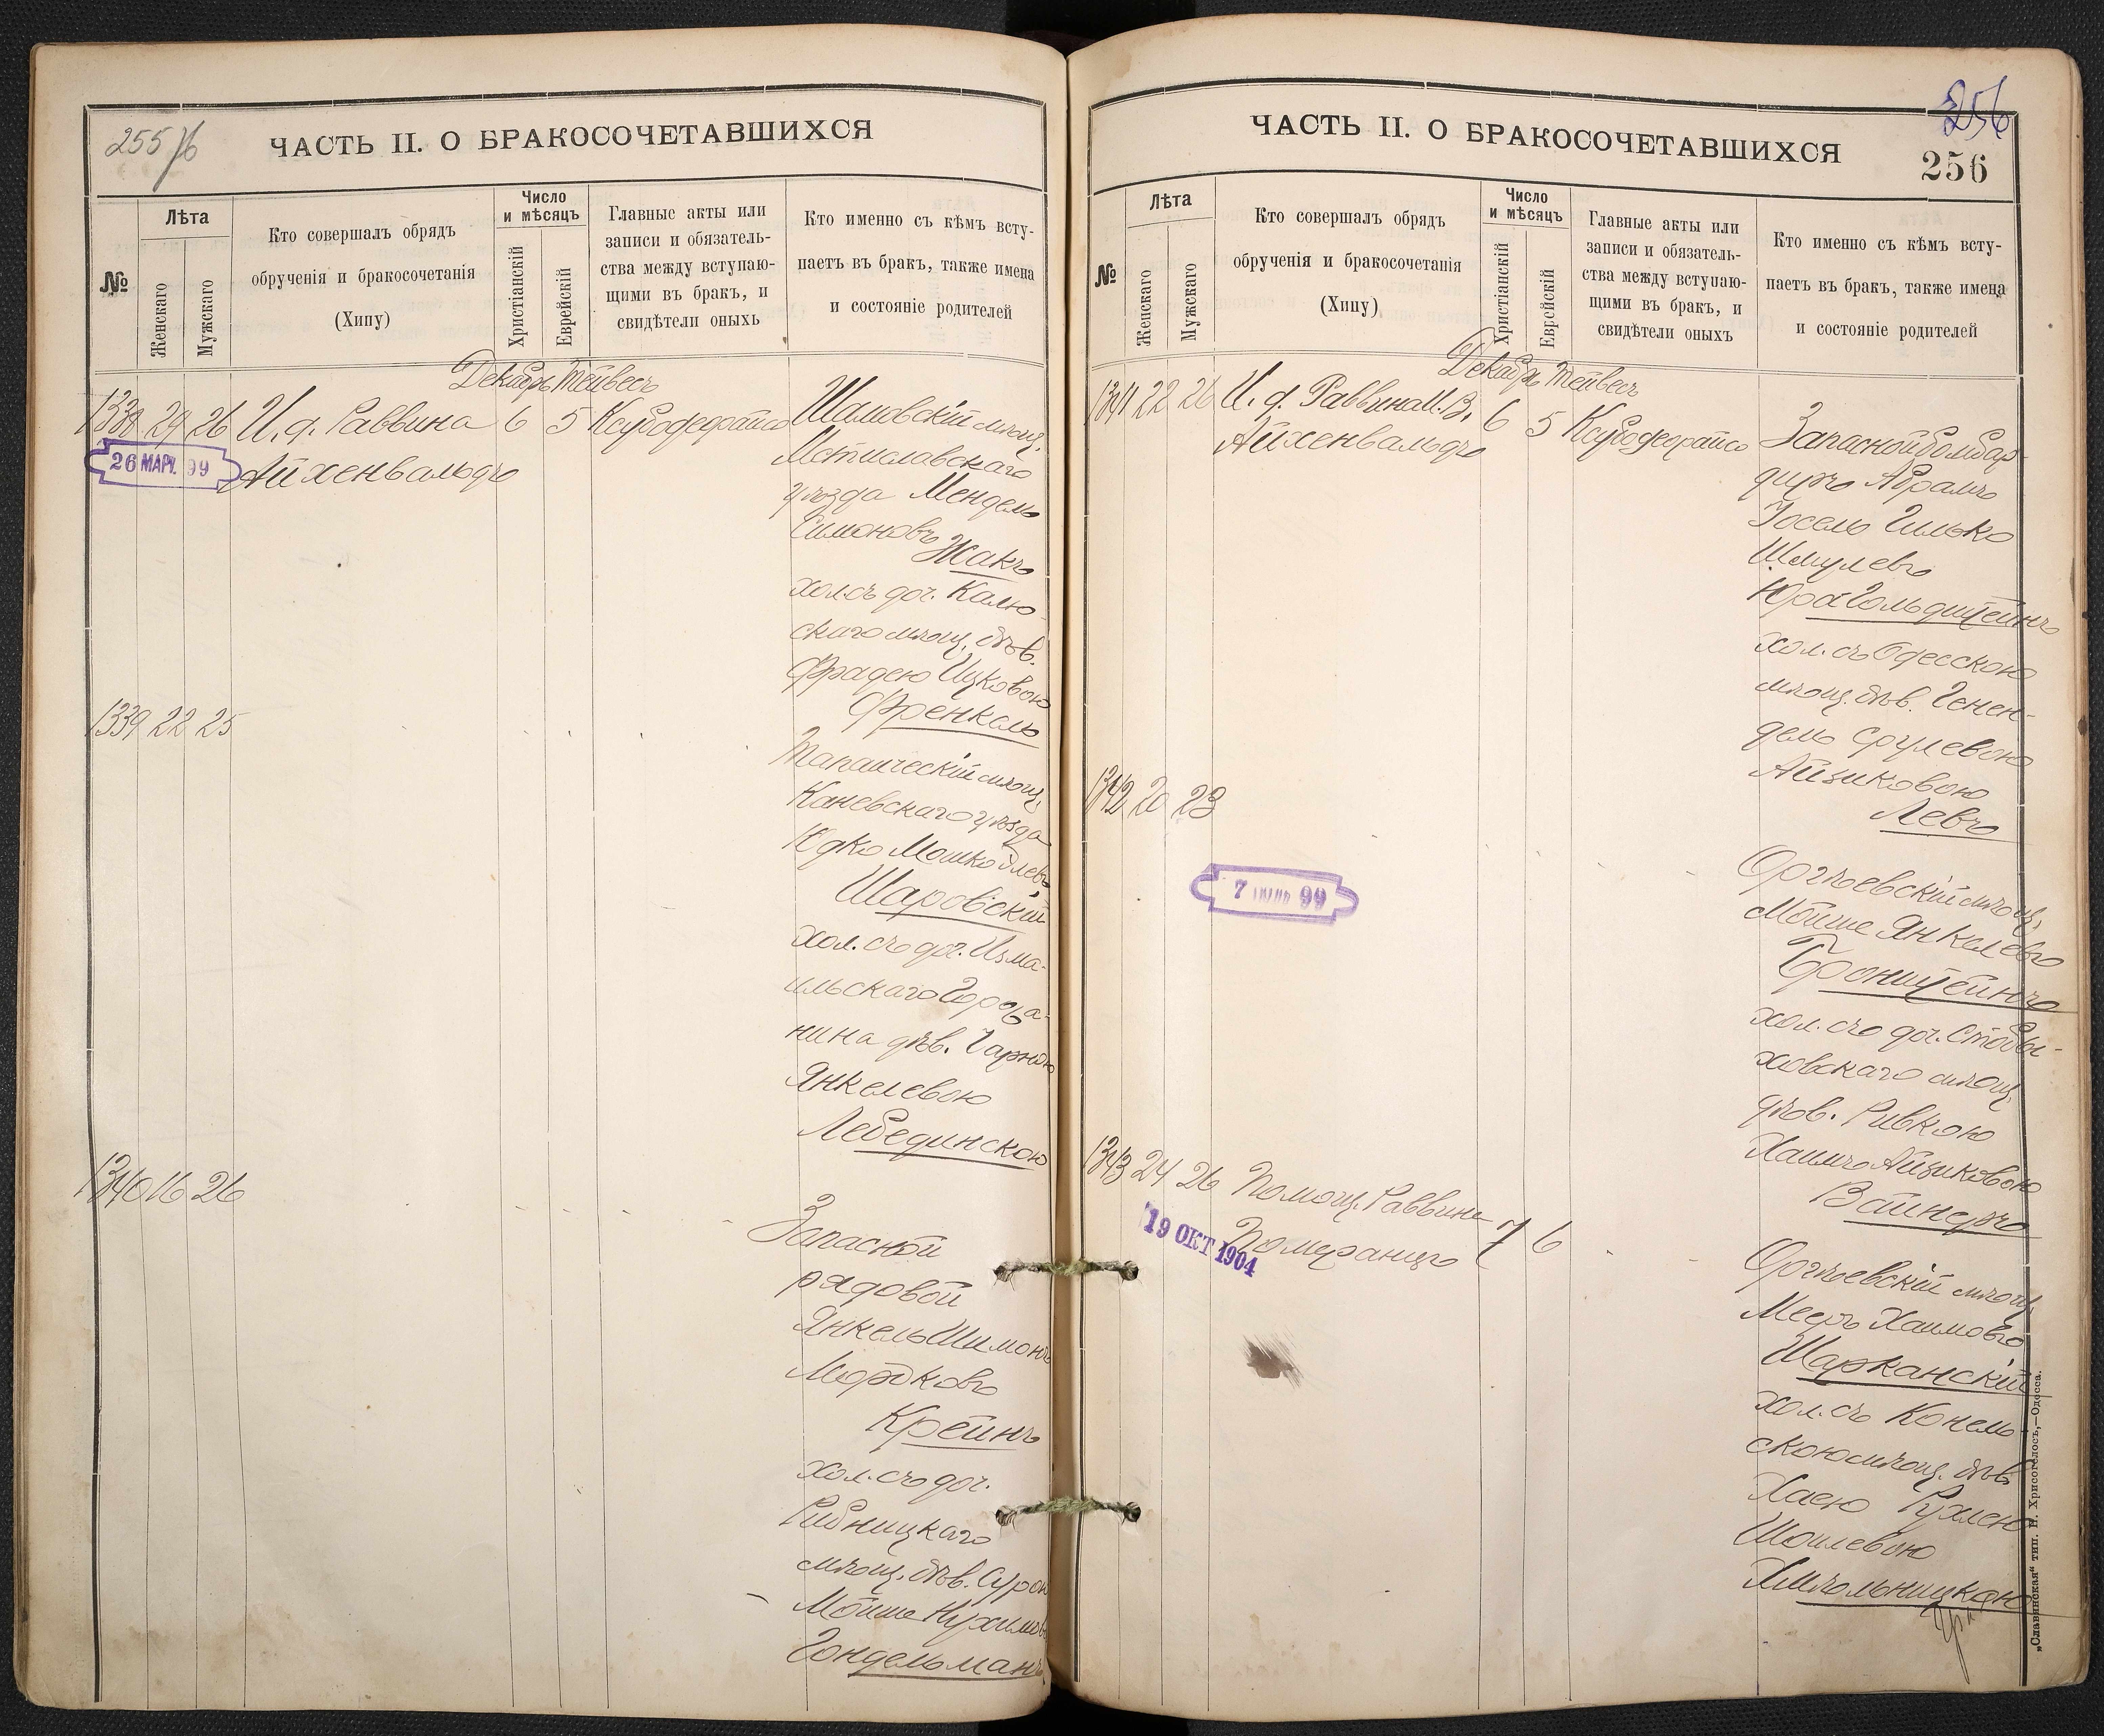 255
ЧАСТЬ II. О БРАКОСОЧЕТАВШИХСЯ
№
Лѣта
Женскаго
Мужскаго
Кто совершалъ обрядъ
обрученія и бракосочетанія
(Хипу)
Число
и мѣсяцъ
Христіанскій
Еврейскій
Главные акты или
записи и обязатель-
ства между вступаю-
щими въ бракъ, и
свидѣтели оныхъ
Кто именно съ кѣмъ всту-
паетъ въ бракъ, также имена
и состояніе родителей
Декабрь Тейвесъ
1338 26 И. д. Раввина 6 5
26 МАР. 99
Айхенвальдъ
мѣщ.
Мстиславскаго
уѣзда Мендель
Симоновъ
Жакъ
хол. съ доч.
скаго мѣщ. дѣв.
Фрадею Ицковою
Френкель
1339 22 25
мѣщ.
Каневскаго уѣзда
Юдко Мошко
Шаровскій
хол. съ доч. Изма-
ильскаго Гора-
нина дѣв.
Янкелевою
Лебединскою
1340 16 26
Запасной
рядовой
Янкель Шимонъ
Мордковъ
Крейнъ
хол. съ доч.
Рибницкаго
мѣщ. дѣв. Сурою
Мойше Нухимов
Гондельманъ
256
ЧАСТЬ II. О БРАКОСОЧЕТАВШИХСЯ
256
№
Лѣта
Женскаго
Мужскаго
Кто совершалъ обрядъ
обрученія и бракосочетанія
(Хипу)
Число
и мѣсяцъ
Христіанскій
Еврейскій
Главные акты или
записи и обязатель-
ства между вступаю-
щими въ бракъ, и
свидѣтели оныхъ
Кто именно съ кѣмъ всту-
паетъ въ бракъ, также имена
и состояніе родителей
Декабрь Тейвесъ
1341 22 26 И. д. Раввина 6 5
Айхенвальдъ
Запасной бомбар-
диръ Абрамъ
Іосель Гилько
Шмулевъ
Гольдштейнъ
хол. съ Одесскою
мѣщ. дѣв. Генен-
дель Срулевою
Айзиковою
Левъ
1342 20 23
7 99
Оргѣевскій мѣщ.
Мойше Янкелевъ
Бронштейнъ
хол. съ доч. Стобы-
ховскаго мѣщ.
дѣв. Ривкою
Хаимъ Айзиковою
Вайнеръ
1343 24 26 Помощ. Раввина 7 6
19 ОКТ 1904
Померанцъ
Оргѣевскій мѣщ.
Мееръ Хаимовъ
Шарканскій
хол. съ Конель-
скою мѣщ. дѣв.
Хаею Рухлею
Шоилевою
Хмѣльницкою
„Славянская“ тип. Н. Хрисогелосъ,—Одесса.